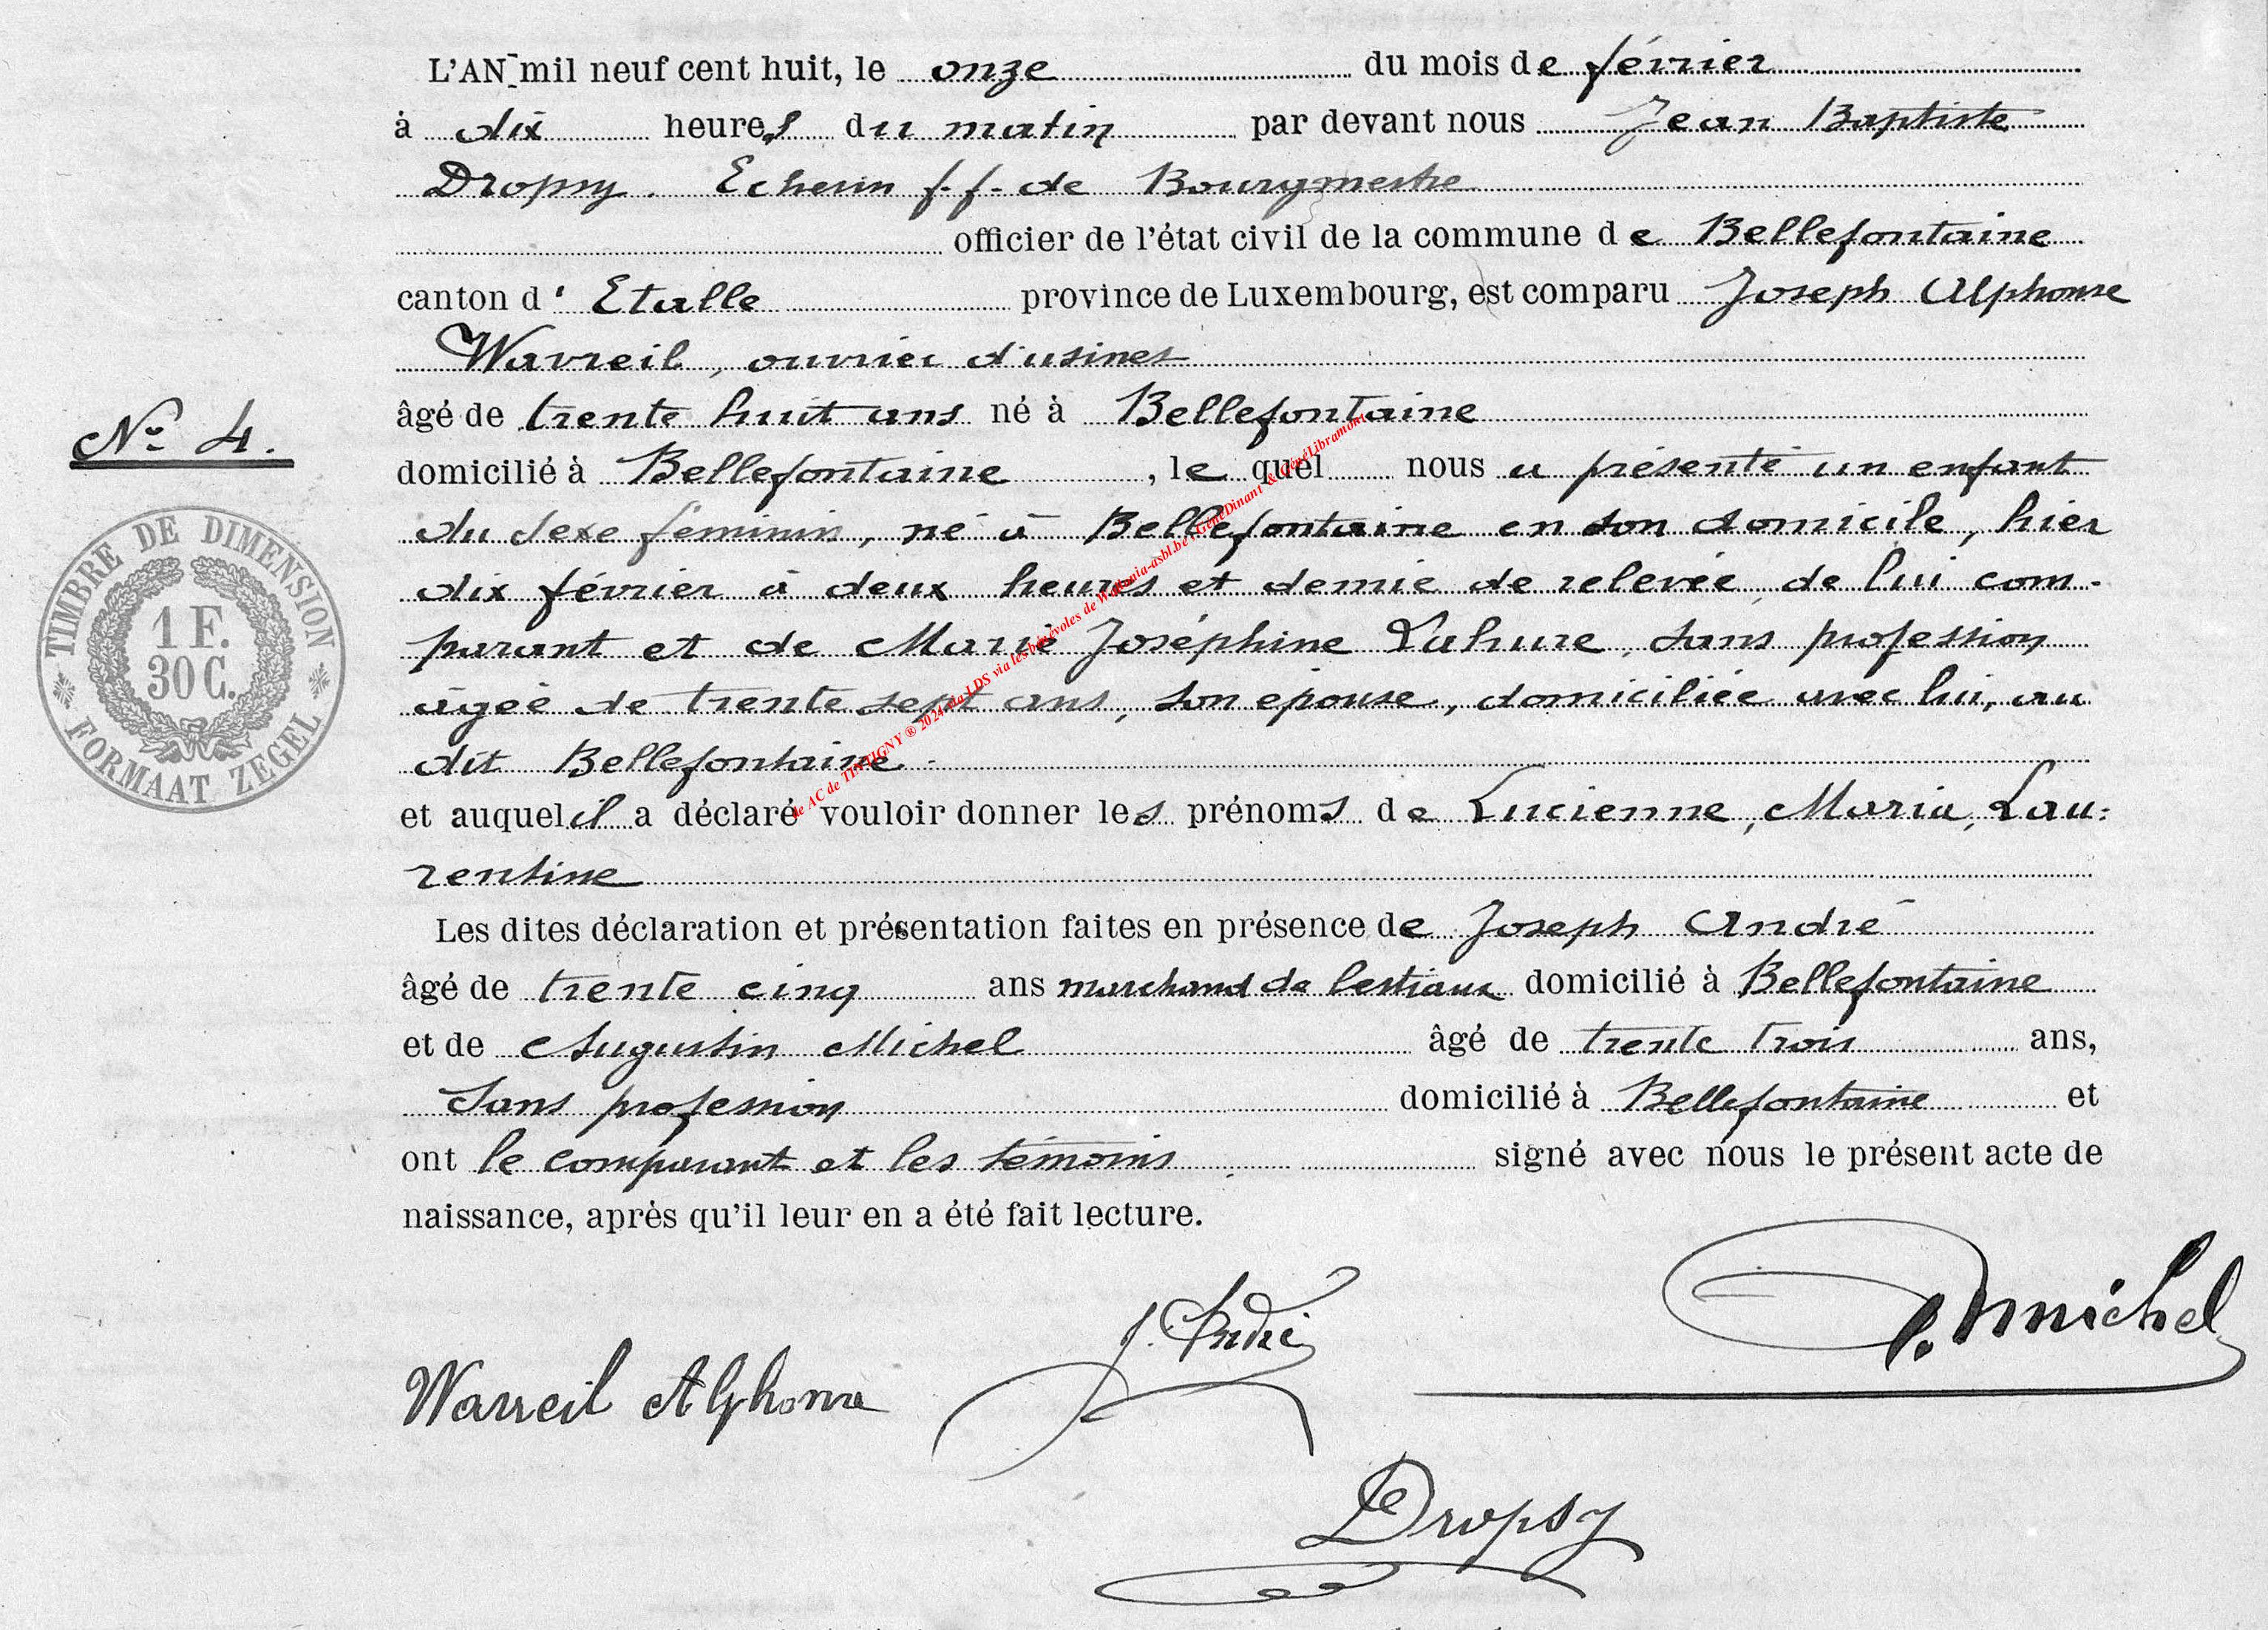 L'AN mil neuf cent huit, le onze du mois de février
à dix heures du matin par devant nous Jean Baptiste
Dropsy. Echevin f.f. de Bourgmestre
officier de l'état civil de la commune de Bellefontaine
canton d' Etalle province de Luxembourg, est comparu Joseph Alphonse
Wavreil, ouvrier d'usines
âgé de trente huit ans né à Bellefontaine
No 4.
domicilié à Bellefontaine, le quel nous a présenté un enfant
du sexe féminin, né à Bellefontaine en son domicile, hier
dix février à deux heures et demie de relevée, de lui com-
parant et de Marie Joséphine Lahure, sans profession
âgée de trente sept ans, son épouse, domiciliée avec lui, au
dit Bellefontaine.
et auquel il a déclaré vouloir donner les prénoms de Lucienne, Maria, Lau:
rentine
Les dites déclaration et présentation faites en présence de Joseph André
âgé de trente cinq ans marchand de bestiaux domicilié à Bellefontaine
et de Augustin Michel âgé de trente trois ans,
Sans profession domicilié à Bellefontaine et
ont le comparant et les témoins signé avec nous le présent acte de
naissance, après qu'il leur en a été fait lecture.
TIMBRE DE DIMENSION
1 F.
30 C.
FORMAAT ZEGEL
de AC de TINTIGNY ® 2024 via LDS via les bénévoles de Wallonia-asbl.be GénéDinant & GénéLibramont
J. André
michel
Wavreil Alphonse
Dropsy